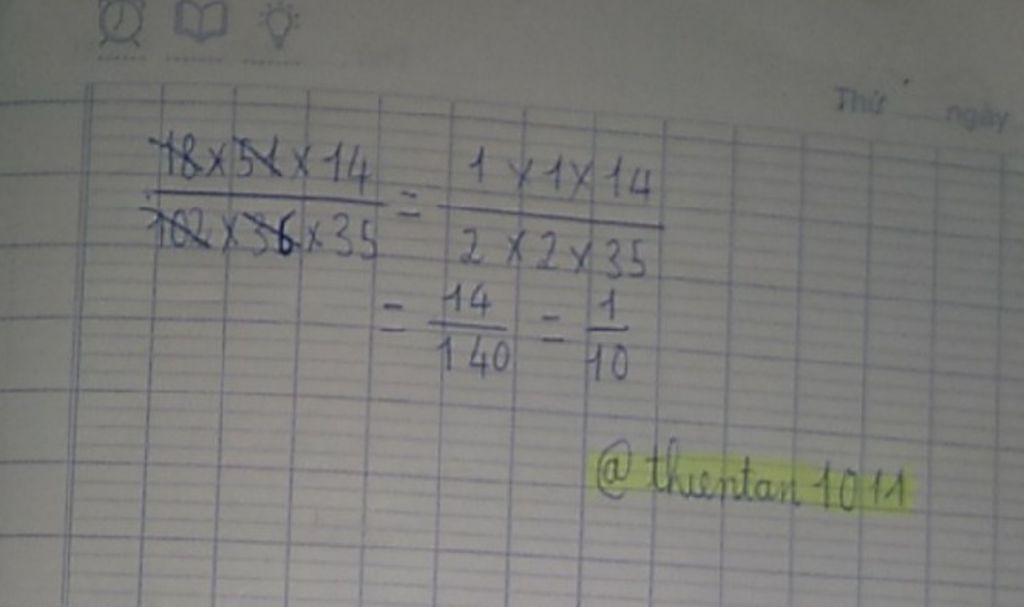 Thứ ngày
18 x 51 x 14 / 102 x 36 x 35 = 1 x 1 x 14 / 2 x 2 x 35
= 14 / 140 = 1 / 10
@ thientan 1011